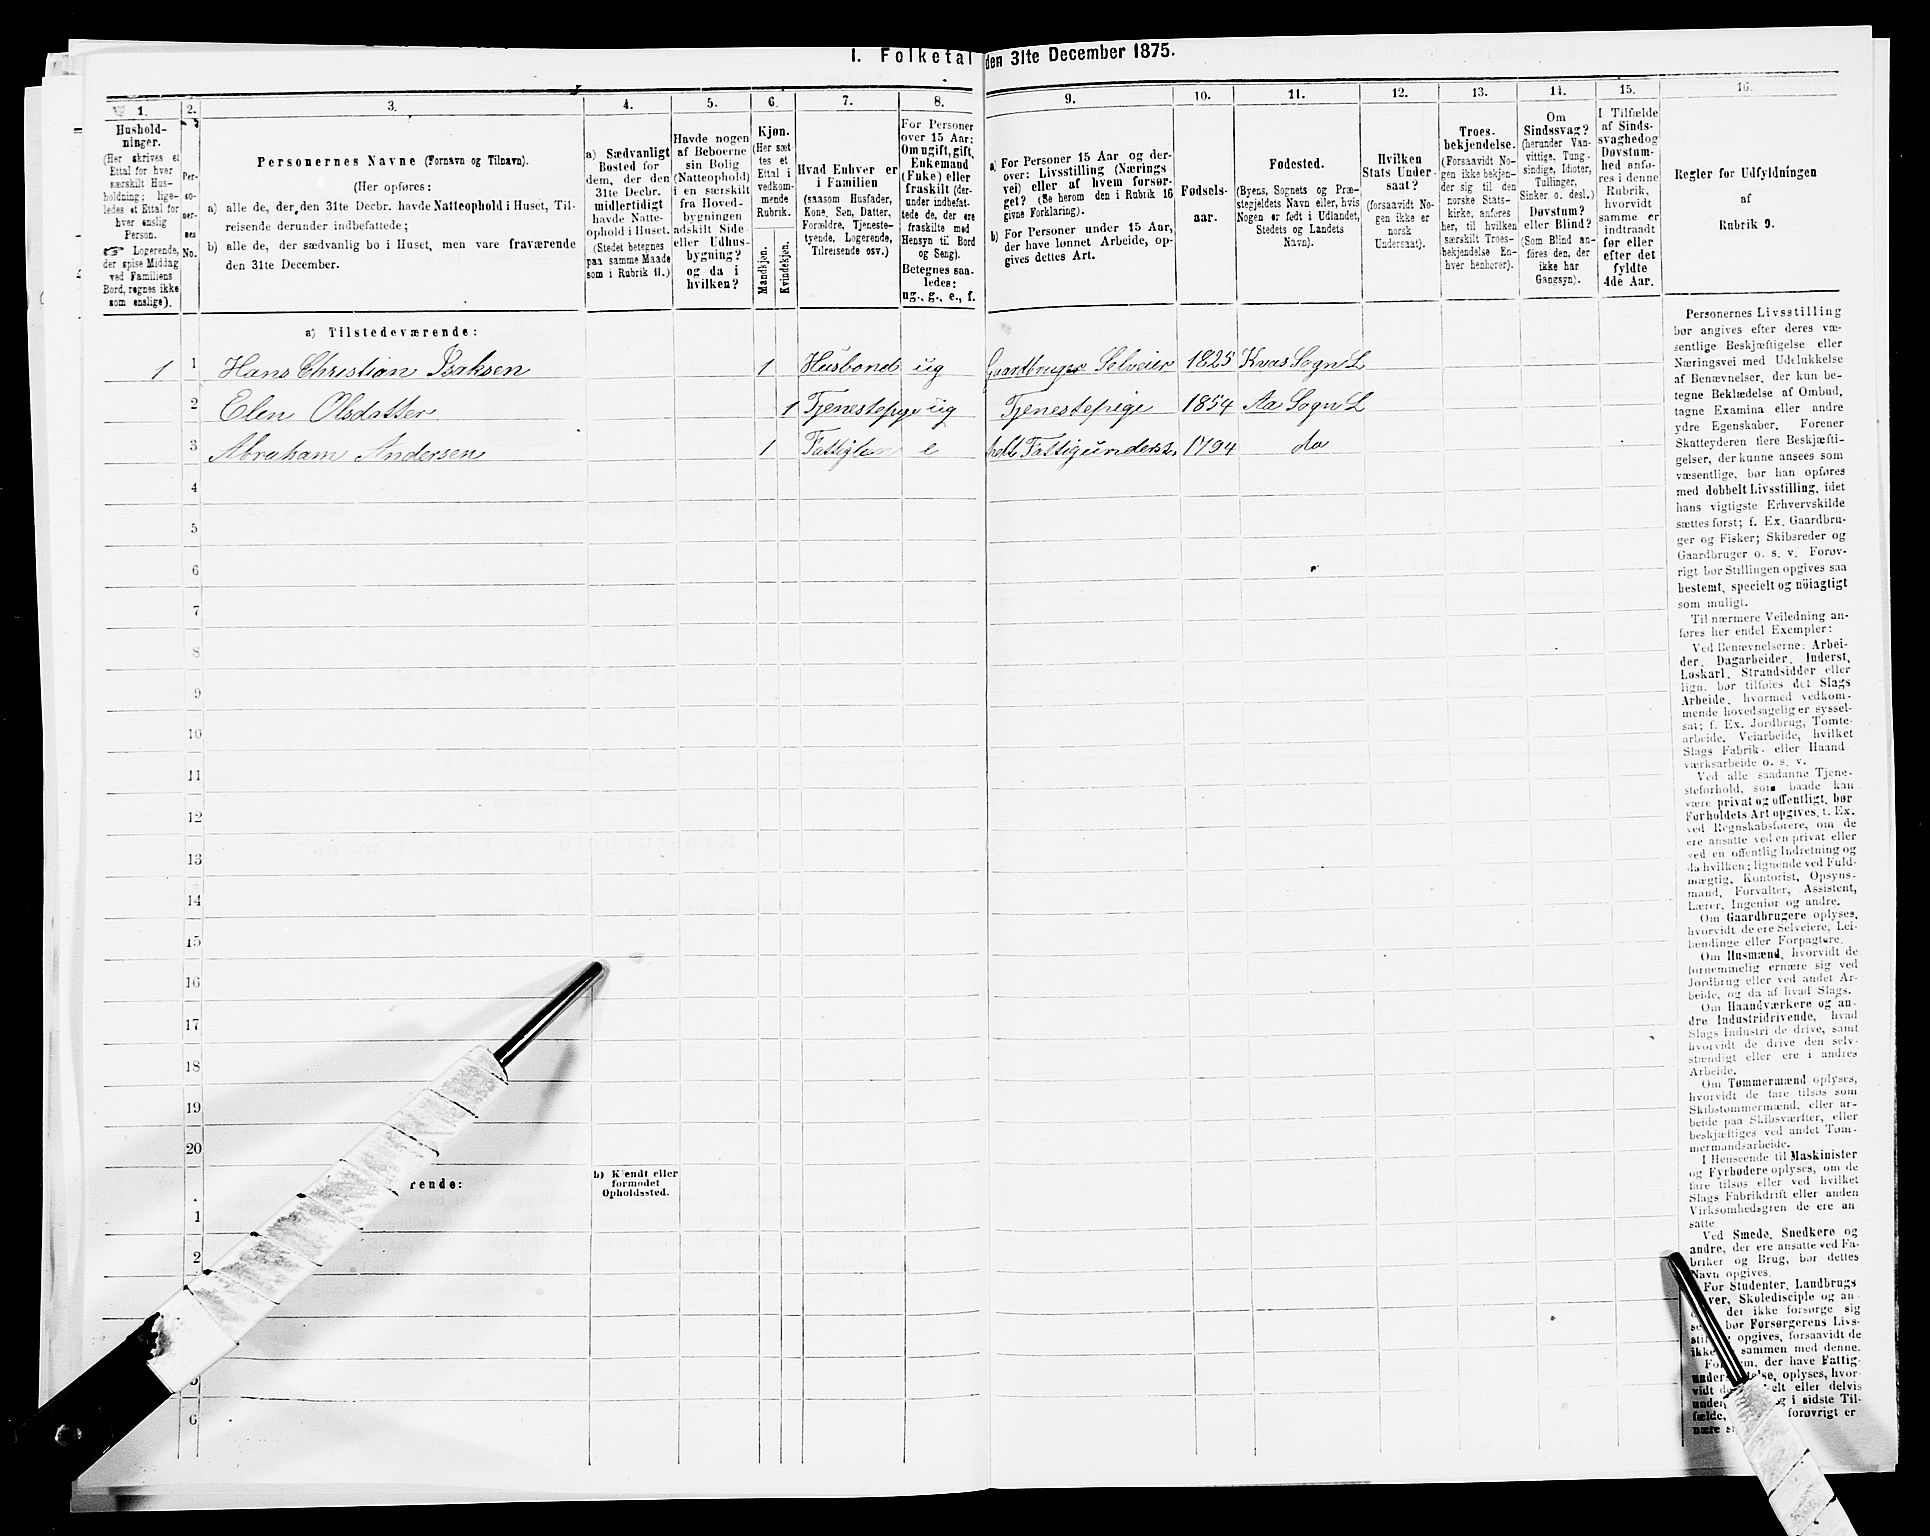 I. Folketal den 31te December 1875.
1.
Hushold-
ninger.
(Her skrives et
Ettal for hver
særskilt Hus-
holdning; lige-
ledes et Ettal for
hver enslig
Person.
☞ Logerende,
der spise Middag
ved Familiens
Bord, regnes ikke
som enslige).
2.
Per-
so-
ner-
nes
No.
3.
Personernes Navne (Fornavn og Tilnavn).
(Her opføres:
a) alle de, der den 31te Decbr. havde Natteophold i Huset, Til-
reisende derunder indbefattede;
b) alle de, der sædvanlig bo i Huset, men vare fraværende
den 31te December.
4.
a) Sædvanligt
Bosted for
dem, der den
31te Decbr.
midlertidigt
havde Natte-
ophold i Huset.
(Stedet betegnes
paa samme Maade
som i Rubrik 11.)
5.
Havde nogen
af Beboerne
sin Bolig
(Natteophold)
i en særskilt
fra Hoved-
bygningen
adskilt Side-
eller Udhus-
bygning?
og da i
hvilken?
6.
Kjøn.
(Her sæt
tes et
Ettal i
vedkom-
mende
Rubrik.
Mandkjøn.
Kvindekjøn.
7.
Hvad Enhver er
i Familien
(saasom Husfader,
Kone, Søn, Datter,
Forældre, Tjeneste-
tyende, Logerende,
Tilreisende osv.)
8.
For Personer
over 15 Aar:
Om ugift, gift,
Enkemand
(Fuke) eller
fraskilt (der-
under indbefat-
tede de, der ere
fraskilte med
Hensyn til Bord
og Seng).
Betegnes saa-
ledes:
ug., g., e., f.
9.
a) For Personer 15 Aar og der-
over: Livsstilling (Nærings
vei) eller af hvem forsør-
get? (Se herom den i Rubrik 16
givne Forklaring).
b) For Personer under 15 Aar,
der have lønnet Arbeide, op-
gives dettes Art.
10.
Fødsels-
aar.
11.
Fødested.
(Byens, Sognets og Præ-
stegjeldets Navn eller, hvis
Nogen er født i Udlandet,
Stedets og Landets
Navn).
12.
Hvilken
Stats Under-
saat?
(forsaavidt No-
gen ikke er
norsk
Undersaat).
13.
Troes-
bekjendelse.
(Forsaavidt No-
gen ikke bekjen-
der sig til den
norske Stats-
kirke, anføres
her, til hvilken
særskilt Troes-
bekjendelse En-
hver henhører).
14.
Om
Sindssvag?
(herunder Van-
vittige, Tung-
sindige, Idioter,
Tullinger,
Sinker o. desl.)
Døvstum?
eller Blind?
(Som Blind an-
føres den, der
ikke har
Gangsyn).
15.
I Tilfælde
af Sinds-
svaghed og
Døvstum-
hed anfø-
res i denne
Rubrik,
hvorvidt
samme er
indtraadt
før eller
efter det
fyldte
4de Aar.
16.
Regler for Udfyldningen
af
Rubrik 9.
a) Tilstedeværende:
1 1 Hans Christian Isaksen 1 Husbond ug Gaardbruger Selveier 1825 Kvas Sogn L
2 Elen Olsdatter 1 Tjenestepige ug Tjenestepige 1854 Aa Sogn L
3 Abraham Andersen 1 Fattiglem e helt Fattigunderst. 1794 do
4
5
6
7
8
9
10
11
12
13
14
15
16
17
18
19
20
rende:
b) Kjendt eller
formodet
Opholdssted.
1
2
6
Personernes Livsstilling
bør angives efter deres væ-
sentlige Beskjæftigelse eller
Næringsvei med Udelukkelse
af Benævnelser, der kun be-
tegne Beklædelse af Ombud,
tagne Examina eller andre
ydre Egenskaber. Forener
Skatteyderen flere Beskjæfti-
gelser, der kunne ansees som
væsentlige, bør han opføres
med dobbelt Livsstilling, idet
hans vigtigste Erhvervskilde
sættes først; f. Ex. Gaardbru-
ger og Fisker; Skibsreder og
Gaardbruger o. s. v. Forøv-
rigt bør Stillingen opgives saa
bestemt, specielt og nöiagtigt
som muligt.
Til nærmere Veiledning an-
føres her endel Exempler:
Ved Benævnelserne: Arbei-
der, Dagarbeider, Inderst,
Løskarl, Strandsidder eller
lign. bør tilføies det Slags
Arbeide, hvormed vedkom-
mende hovedsagelig er syssel-
sat; f. Ex. Jordbrug, Tomte-
arbeide, Veiarbeide, hvilket
Slags Fabrik- eller Haand-
værksarbeide o. s. v.
Ved alle saadanne Tjene-
steforhold, som baade kan
være privat og offentligt, bør
Forholdets Art opgives, f. Ex.
ved Regnskabsførere, om de
ere ansatte ved en privat eller
ved en offentlig Indretning og
da hvilken; lignende ved Fuld-
mægtig, Kontorist, Opsyns-
mand, Forvalter, Assistent,
Lærer, Ingeniør og andre.
Om Gaardbrugere oplyses,
hvorvidt de ere Selveiere, Lei-
lændinge eller Forpagtere.
Om Husmænd, hvorvidt de
fornemmelig ernære sig ved
Jordbrug eller ved andet Ar-
beide, og da af hvad Slags.
Om Haandværkere og an-
dre Industridrivende, hvad
Slags Industri de drive, samt
hvorvidt de drive den selv-
stændigt eller ere i andres
Arbeide.
Om Tømmermænd oplyses,
hvorvidt de fare tilsøs som
Skibstømmermænd, eller ar-
beide paa Skibsværfter, eller
beskjæftiges ved andet Tøm-
mermandsarbeide.
I Henseende til Maskinister
og Fyrbødere oplyses, om de
fare tilsøs eller ved hvilket
Slags Fabrikdrift eller anden
Virksomhedsgren de ere an-
satte.
Ved Smede, Snedkere og
andre, der ere ansatte ved Fa-
briker og Brug, bør dettes
Navn opgives.
For Studenter, Landbrugs
ver, Skoledisciple og an-
der ikke forsørge sig
bør Forsørgerens Livs-
opgives, forsaavidt de
ikke sammen med denne.
der have Fattig-
oplyses, hvor-
helt eller delvis
i sidste Til-
fælde, forøvrigt er